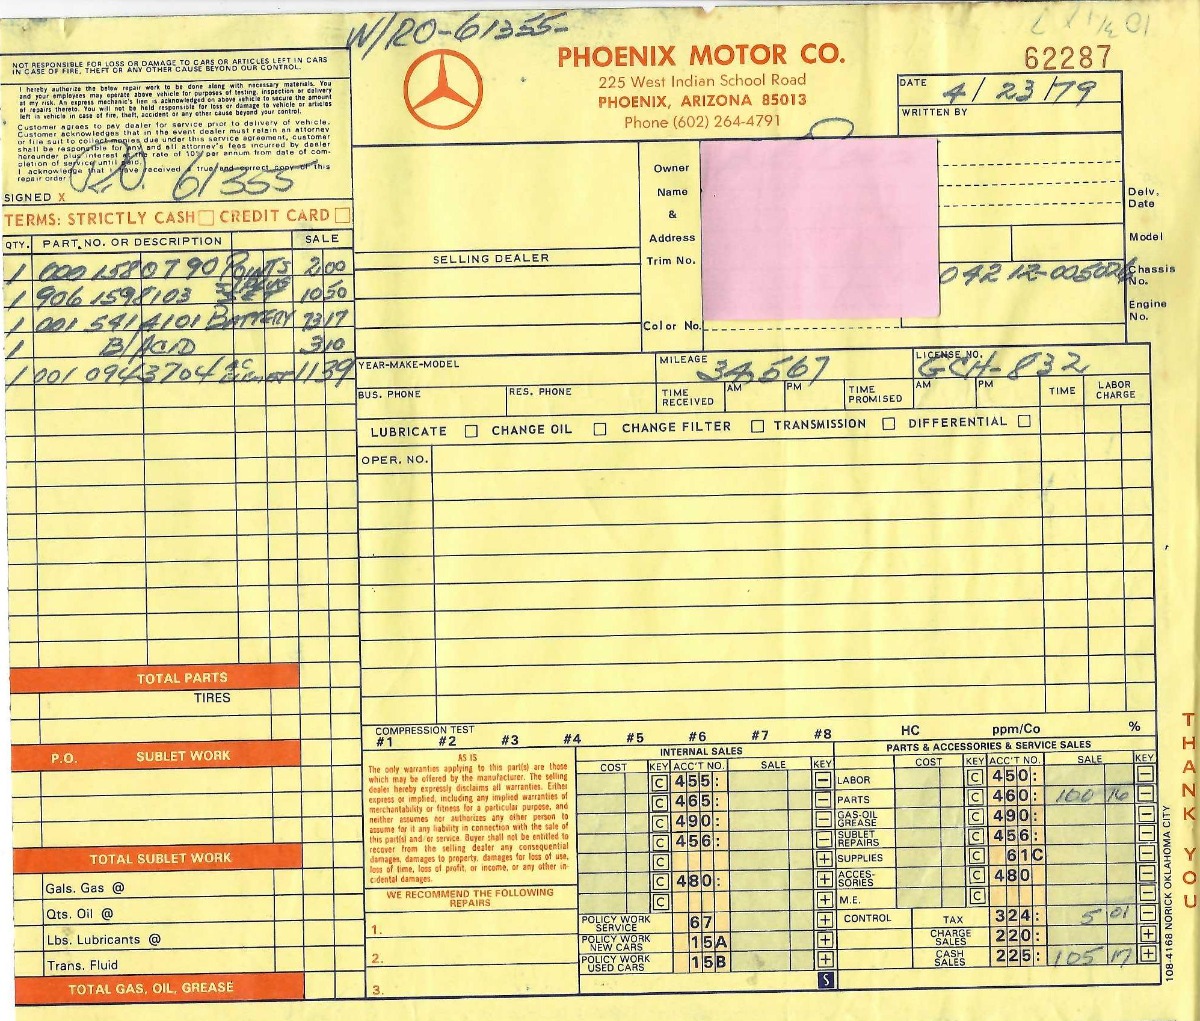 W/RO-61355-
62287
PHOENIX MOTOR CO.
225 West Indian School Road
PHOENIX, ARIZONA 85013
Phone (602) 264-4791
DATE 4/23/79
WRITTEN BY
NOT RESPONSIBLE FOR LOSS OR DAMAGE TO CARS OR ARTICLES LEFT IN CARS
IN CASE OF FIRE, THEFT OR ANY OTHER CAUSE BEYOND OUR CONTROL.
I hereby authorize the below repair work to be done along with necessary materials. You
and your employees may operate above vehicle for purposes of testing, inspection or delivery
at my risk. An express mechanic's lien is acknowledged on above vehicle to secure the amount
of repairs thereto. You will not be held responsible for loss or damage to vehicle or articles
left in vehicle in case of fire, theft, accident or any other cause beyond your control.
Customer agrees to pay dealer for service prior to delivery of vehicle.
Customer acknowledges that in the event dealer must retain an attorney
or file suit to collect monies due under this service agreement, customer
shall be responsible for any and all attorney's fees incurred by dealer
hereunder plus interest at the rate of 10% per annum from date of com-
pletion of service until paid.
I acknowledge that I have received a true and correct copy of this
repair order.
61355
SIGNED X
TERMS: STRICTLY CASH CREDIT CARD
QTY. PART NO. OR DESCRIPTION SALE
1 000 158 07 90 POINTS 2.00
1 906 159 8103 10 50
1 001 541 4101 BATTERY 73 17
1 B/ACID 3 10
1 001 094 3704 11 39
TOTAL PARTS
TIRES
P.O. SUBLET WORK
TOTAL SUBLET WORK
Gals. Gas @
Qts. Oil @
Lbs. Lubricants @
Trans. Fluid
TOTAL GAS, OIL, GREASE
SELLING DEALER
Owner
Name
&
Address
Trim No.
Color No.
Delv.
Date
Model
Chassis
No.
042 12-005026
Engine
No.
YEAR-MAKE-MODEL
MILEAGE 34,567
LICENSE NO. GCH-832
BUS. PHONE RES. PHONE TIME RECEIVED AM PM TIME PROMISED AM PM TIME LABOR CHARGE
LUBRICATE CHANGE OIL CHANGE FILTER TRANSMISSION DIFFERENTIAL
OPER. NO.
COMPRESSION TEST
#1 #2 #3 #4 #5 #6 #7 #8 HC ppm/Co %
AS IS
The only warranties applying to this part(s) are those
which may be offered by the manufacturer. The selling
dealer hereby expressly disclaims all warranties. Either
express or implied, including any implied warranties of
merchantability or fitness for a particular purpose, and
neither assumes nor authorizes any other person to
assume for it any liability in connection with the sale of
this part(s) and/or service. Buyer shall not be entitled to
recover from the selling dealer any consequential
damages, damages to property, damages for loss of use,
loss of time, loss of profit, or income, or any other in-
cidental damages.
WE RECOMMEND THE FOLLOWING
REPAIRS
1.
2.
3.
INTERNAL SALES
COST KEY ACC'T NO. SALE KEY
C 455: −
C 465: −
C 490: −
C 456: −
C +
C 480: +
C +
POLICY WORK SERVICE 67 +
POLICY WORK NEW CARS 15A +
POLICY WORK USED CARS 15B +
S
PARTS & ACCESSORIES & SERVICE SALES
COST KEY ACC'T NO. SALE KEY
LABOR C 450: −
PARTS C 460: 100 16 −
GAS-OIL GREASE C 490: −
SUBLET REPAIRS C 456: −
SUPPLIES C 61C −
ACCES-SORIES C 480 −
M.E. C −
CONTROL TAX 324: 5 01 −
CHARGE SALES 220: +
CASH SALES 225: 105 17 +
THANK YOU
108-4168 NORICK OKLAHOMA CITY